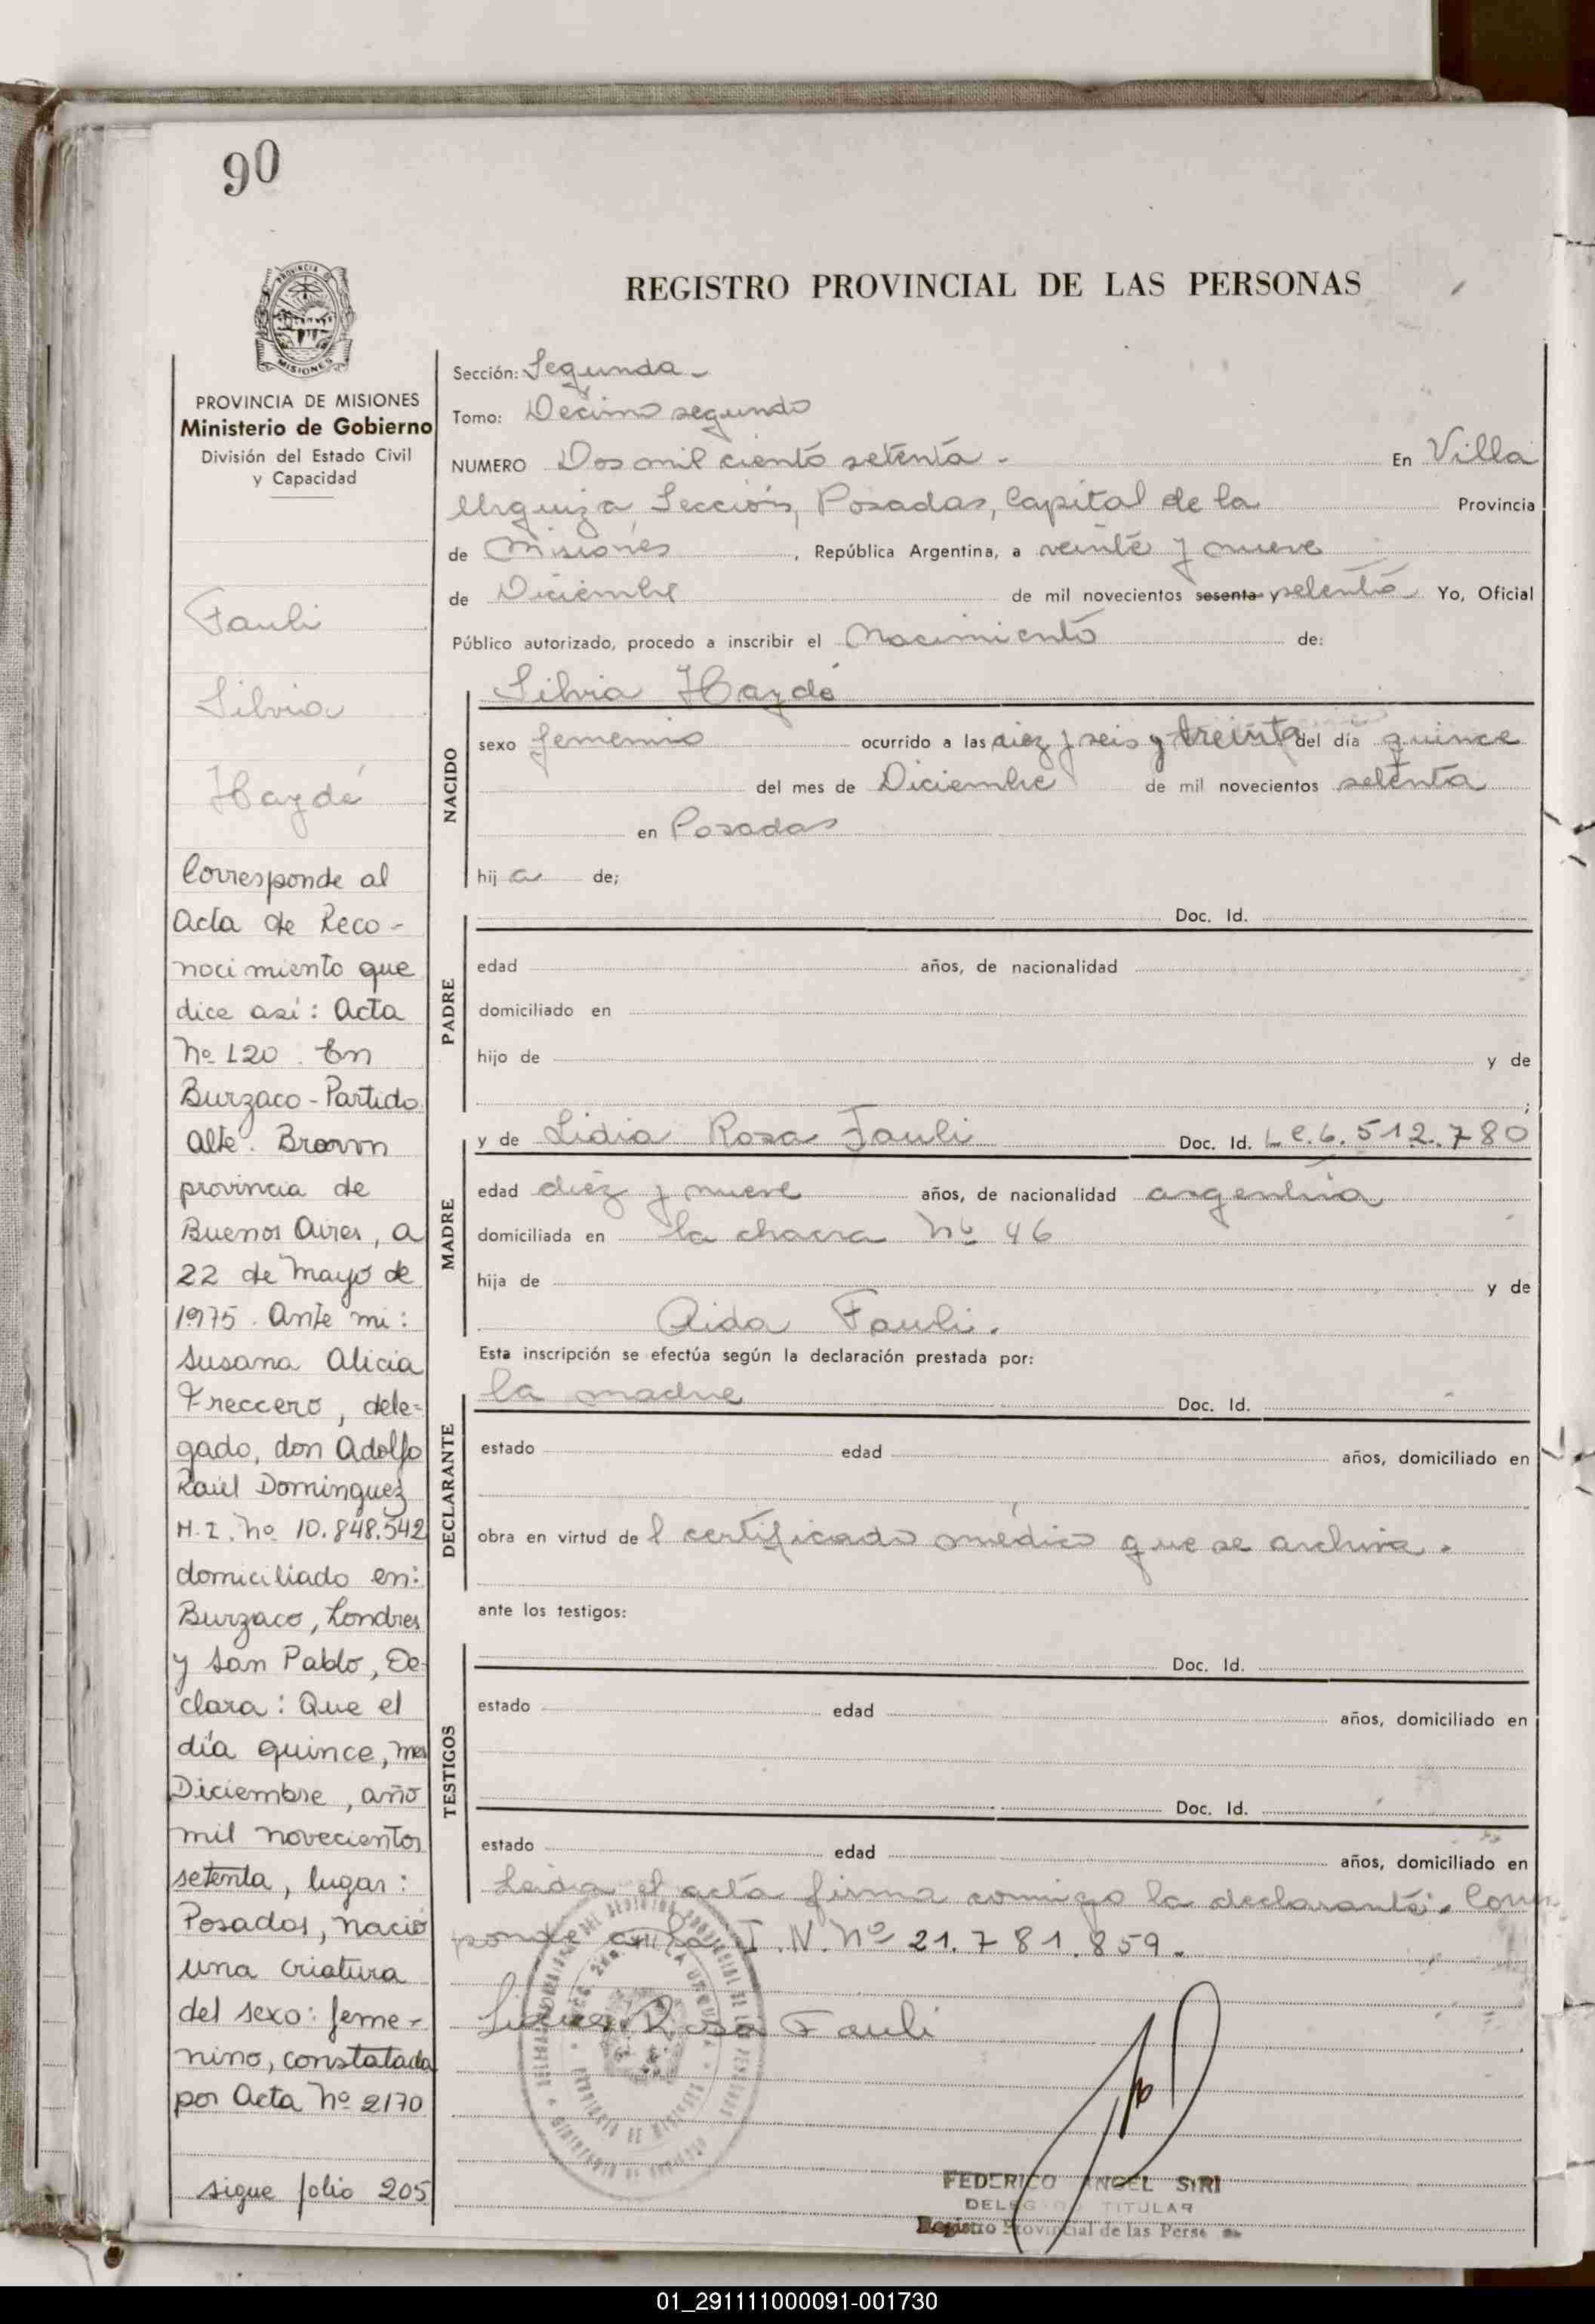 90
REGISTRO PROVINCIAL DE LAS PERSONAS
PROVINCIA DE
MISIONES
PROVINCIA DE MISIONES
Ministerio de Gobierno
División del Estado Civil
y Capacidad
Fauli
Silvia
Haydé
Corresponde al
Acta de Reco-
nocimiento que
dice así: Acta
Nº 120. En
Burzaco - Partido
Alte. Brown
provincia de
Buenos Aires, a
22 de Mayo de
1975. Ante mi:
Susana Alicia
Freccero, dele=
gado, don Adolfo
Raúl Dominguez
M.I. Nº 10.848.542
domiciliado en:
Burzaco, Londres
y San Pablo, De-
clara: Que el
día quince, mes
Diciembre, año
mil novecientos
setenta, lugar:
Posadas, nació
una criatura
del sexo: feme-
nino, constatada
por Acta Nº 2170
sigue folio 205
Sección: Segunda -
Tomo: Décimo segundo
NUMERO Dos mil ciento setenta - En Villa
Urquiza Sección, Posadas, Capital de la Provincia
de Misiones, República Argentina, a veinte y nueve
de Diciembre de mil novecientos sesenta y setenta Yo, Oficial
Público autorizado, procedo a inscribir el Nacimiento de:
NACIDO
Silvia Haydé
sexo femenino ocurrido a las diez y seis y treinta del día quince
del mes de Diciembre de mil novecientos setenta
en Posadas
hij a de;
PADRE
Doc. Id.
edad años, de nacionalidad
domiciliado en
hijo de y de
;
MADRE
y de Lidia Rosa Fauli Doc. Id. L.C. 6.512.780
edad diez y nueve años, de nacionalidad argentina
domiciliada en la chacra Nº 46
hija de y de
Aida Fauli.
Esta inscripción se efectúa según la declaración prestada por:
DECLARANTE
la madre Doc. Id.
estado edad años, domiciliado en
obra en virtud de l certificado médico que se archiva.
ante los testigos:
TESTIGOS
Doc. Id.
estado edad años, domiciliado en
Doc. Id.
estado edad años, domiciliado en
Leida el acta firma conmigo la declarante. Corres
ponde a la I.N. Nº 21.781.859.
Lidia Rosa Fauli
FEDERICO ANGEL SIRI
DELEGADO TITULAR
Registro Provincial de las Perso
01_291111000091-001730